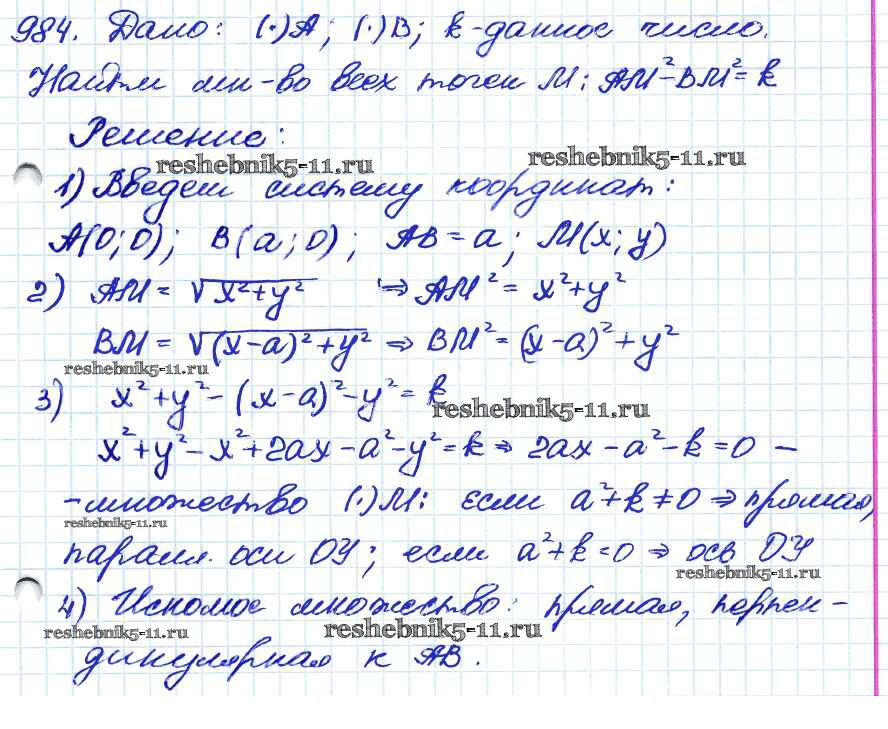 984. Дано: (·)A; (·)B; k-данное число.
Найти мн-во всех точек M: AM²-BM²=k
Решение:
reshebnik5-11.ru reshebnik5-11.ru
1) Введем систему координат:
A(0;0); B(a;0); AB=a; M(x;y)
2) AM = √x²+y² ⇒ AM² = x²+y²
BM = √(x-a)²+y² ⇒ BM² = (x-a)²+y²
reshebnik5-11.ru
3) x²+y²-(x-a)²-y²=k
reshebnik5-11.ru
x²+y²-x²+2ax-a²-y²=k ⇒ 2ax-a²-k=0 -
-множество (·)M: если a²+k≠0 ⇒ прямая,
reshebnik5-11.ru
паралл. оси OY; если a²+k=0 ⇒ ось OY
reshebnik5-11.ru
4) Искомое множество: прямая, перпен-
reshebnik5-11.ru reshebnik5-11.ru
дикулярная к AB.